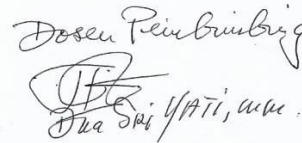 Dosen Pembimbing
Dra Sri YATI, MM.